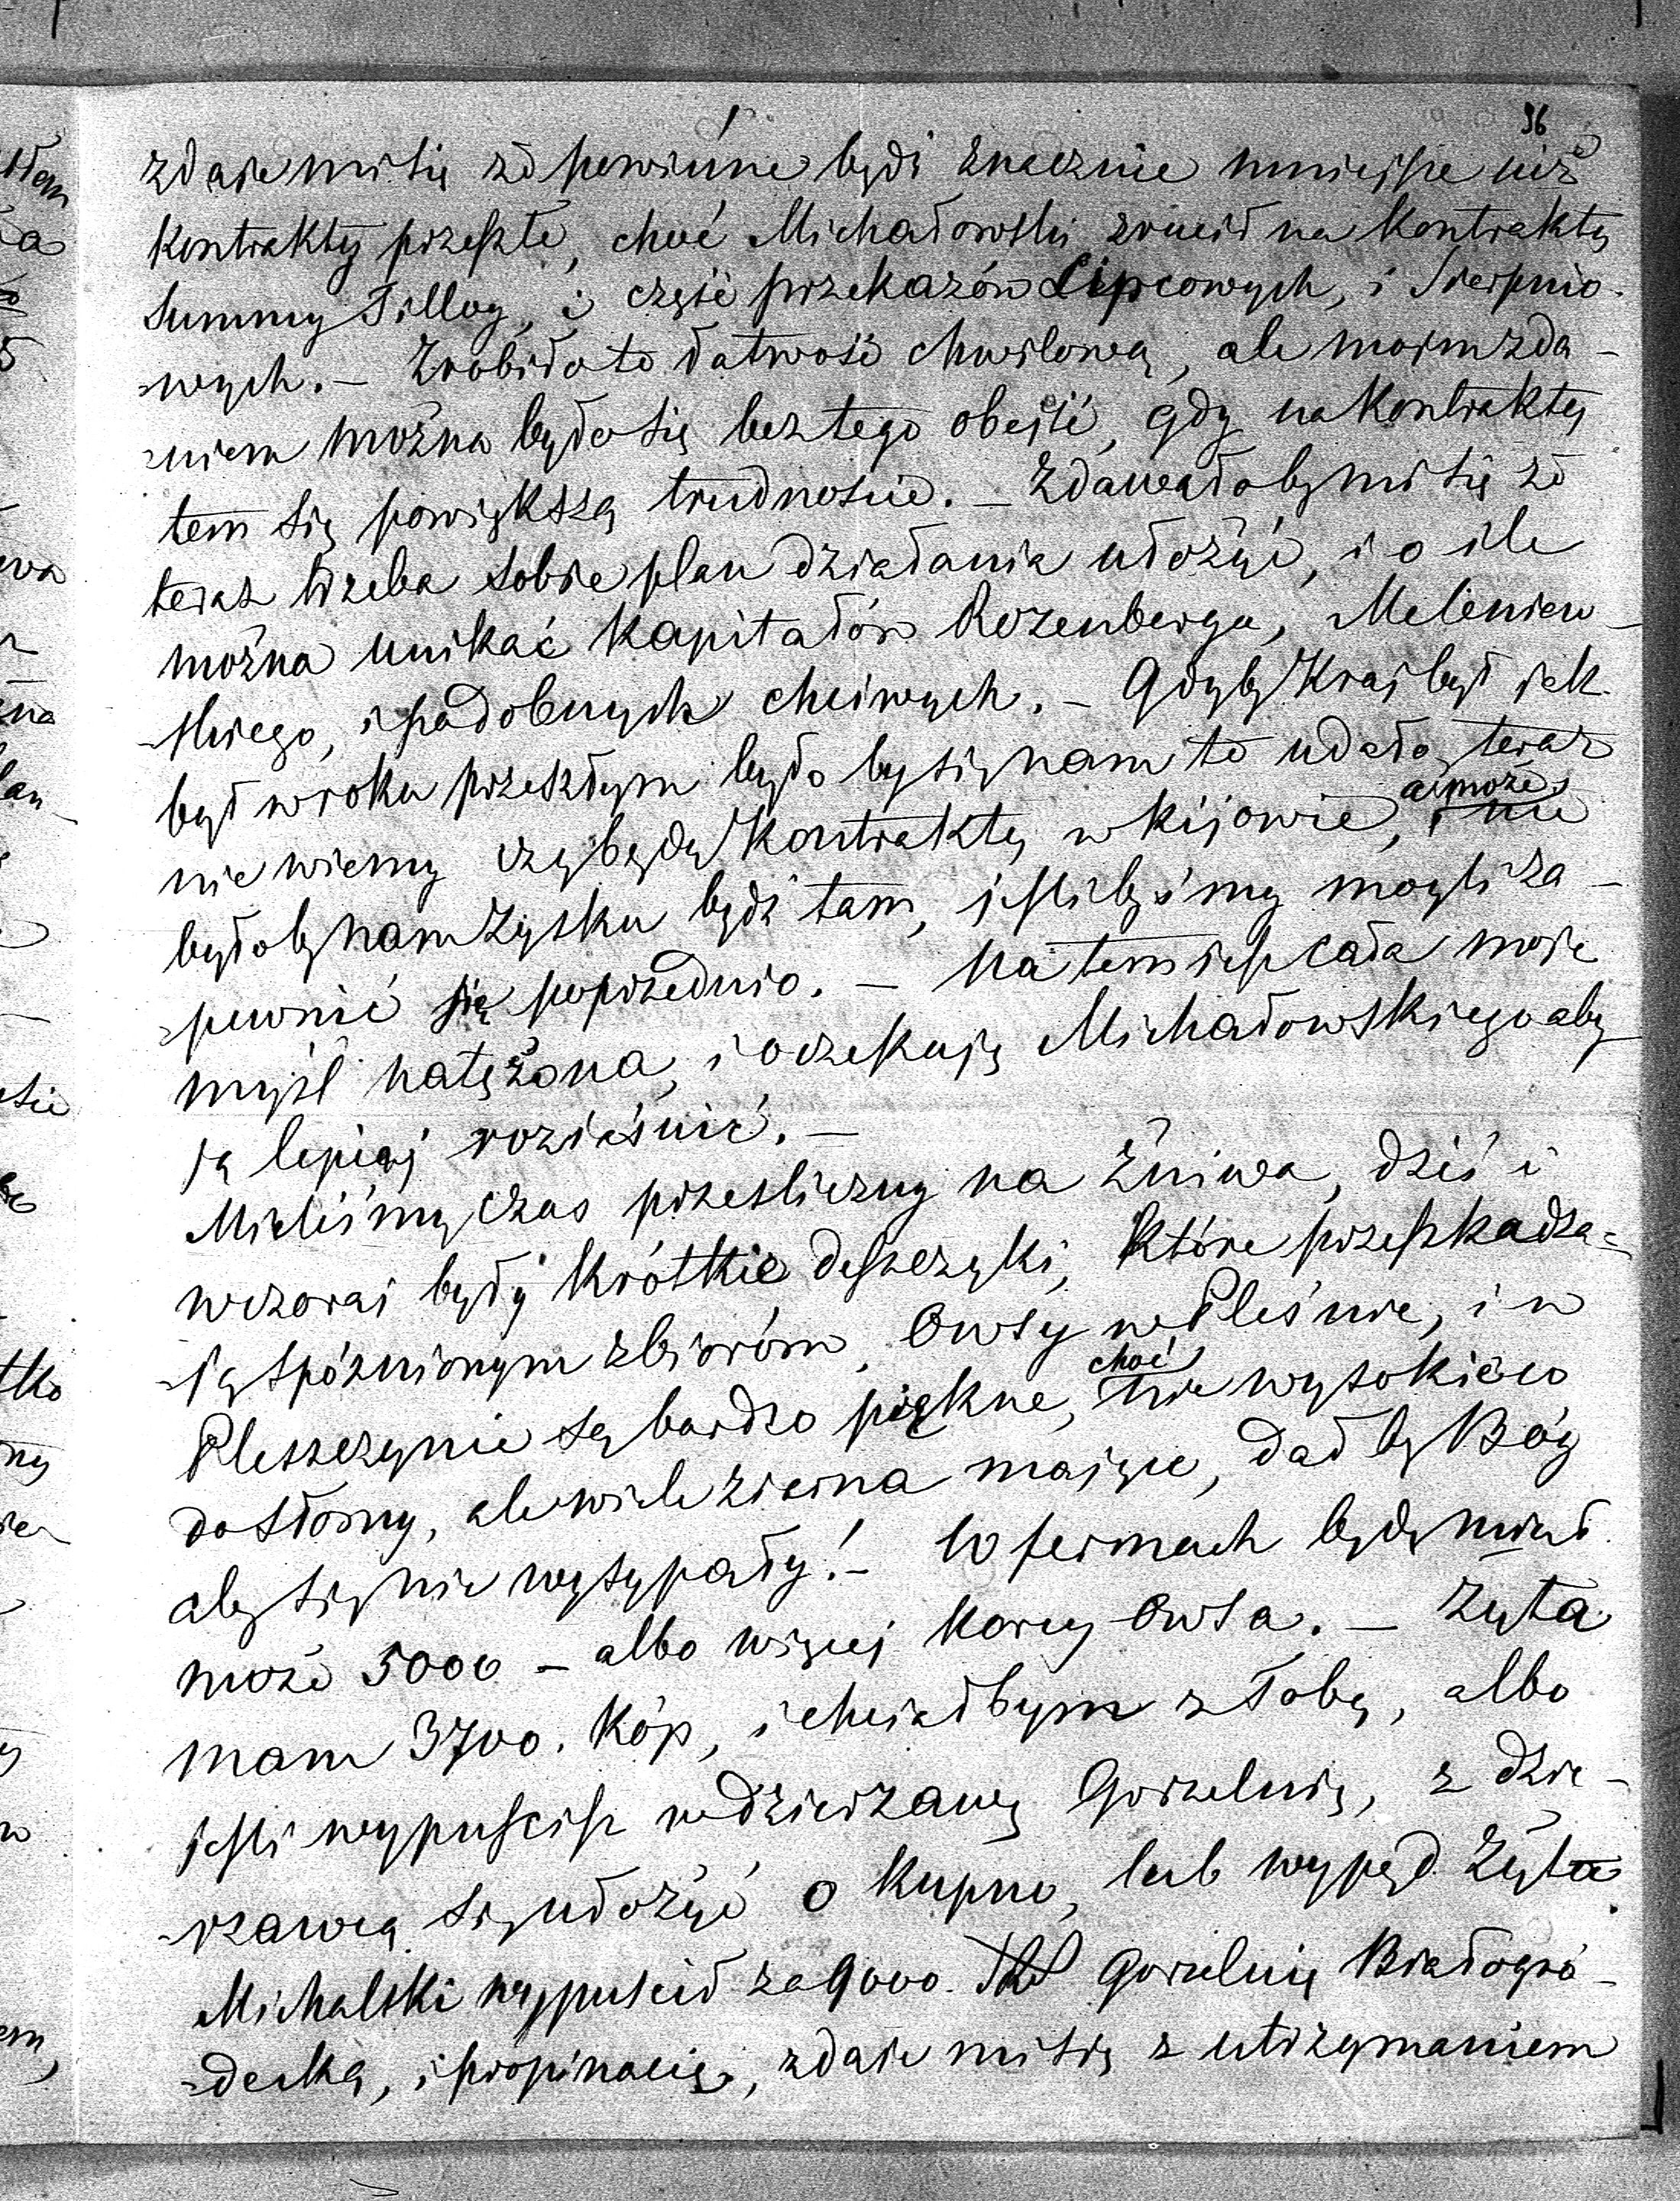 96
zdaie mi się że powinne bydź znacznie mnieysze niż
kontrakty przeszłe, choć Michałowski zrucił na kontrakty
summy Filloy, i część przekazów Lipcowych, i Sierpnio-
-wych. – Zrobiło to łatwość chwilową, ale moim zda-
-niem można było się bez tego obejść, gdy na kontrakty
tem się powiększą trudnoście. – Zdawałoby mi się że
teraz trzeba sobie plan działania ułożyć, i o ile
można unikać kapitałów Rozenberga, Meleniew-
-skiego, i podobnych chciwych. – Gdyby Kraj był jak
był w roku przeszłym było by się nam to udało, teraz
nie wiemy czy będą kontrakty w Kijowie, a może nie
byłoby nam zysku bydź tam, jeślibyśmy mogli za-
-pewnić się poprzednio. – Na tem iest cała moja
myśl natężona, i oczekuję Michałowskiego aby
ją lepiej roziaśnić. –
Mieliśmy czas prześliczny na żniwa, dziś i
wczoraj były krótkie deszczyki, które przeszkadza-
-ią spóźnionym zbiorom, Owsy w Pleśnie, i w
Pleszczynie są bardzo piękne, choć nie wysokie co
do słomy, ale wiele ziarna maiące, dał by Bóg
aby się nie wysypały! – W fermach będę miał
może 5000 – albo więcej korcy owsa. – Żyta
mam 3700. kóp, i chciałbym z Tobą, albo
jeśli wypuścisz w dzierżawę Gorzelnię, z dzie-
-rzawcą się ułożyć o kupno, lub wypęd żyta.
Michalski wypuścił za 9000. Gorzelnię Białogró-
-decką, i propinacię, zdaie mi się z utrzymaniem